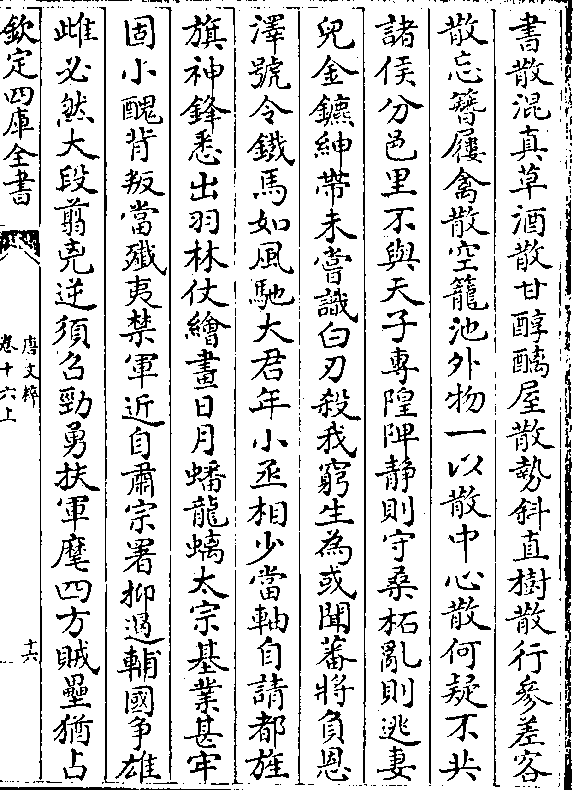 書散混真草酒散甘醇醨屋散勢斜直樹散行參差客
散忘簪屨禽散空籠池外物一以散中心散何疑不共
諸侯分邑里不與天子專隍陴静則守桑柘亂則逃妻
兒金鑣紳帶未嘗識白刃殺我窮生為或聞蕃將負恩
澤號令鐵馬如風馳大君年小丞相少當軸自請都旌
旗神鋒悉出羽林仗繪畫日月蟠龍螭太宗基業甚牢
固小醜背叛當殲夷禁軍近自肅宗署抑遏輔國争雄
雌必然大段翦兇逆須召勁勇扶軍麾四方賊壘猶占
欽定四庫全書
唐文粹
卷十六上
十六